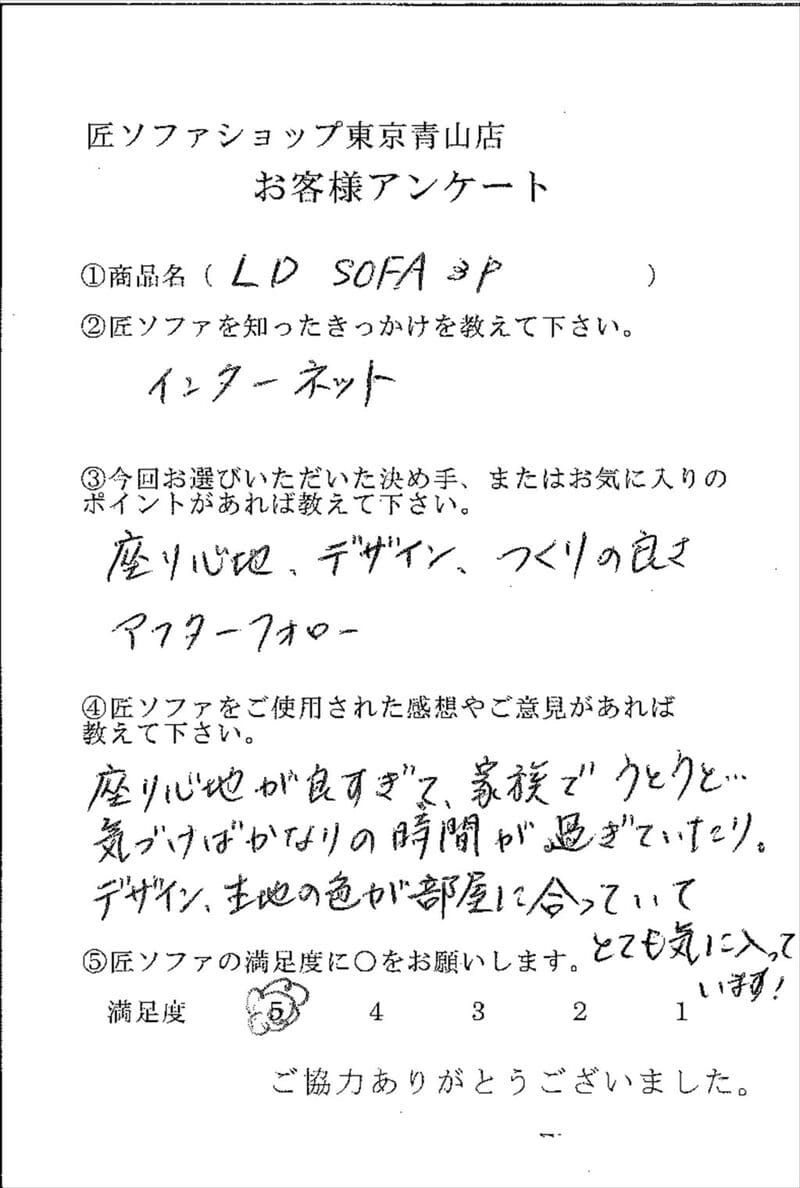 匠ソファショップ東京青山店
お客様アンケート
①商品名（ LD SOFA 3P ）
②匠ソファを知ったきっかけを教えて下さい。
インターネット
③今回お選びいただいた決め手、またはお気に入りの
ポイントがあれば教えて下さい。
座り心地、デザイン、つくりの良さ
アフターフォロー
④匠ソファをご使用された感想やご意見があれば
教えて下さい。
座り心地が良すぎて、家族でうとうと…
気づけばかなりの時間が過ぎていたり。
デザイン、生地の色が部屋に合っていて
とても気に入って
います!
⑤匠ソファの満足度に○をお願いします。
満足度 5 4 3 2 1
ご協力ありがとうございました。